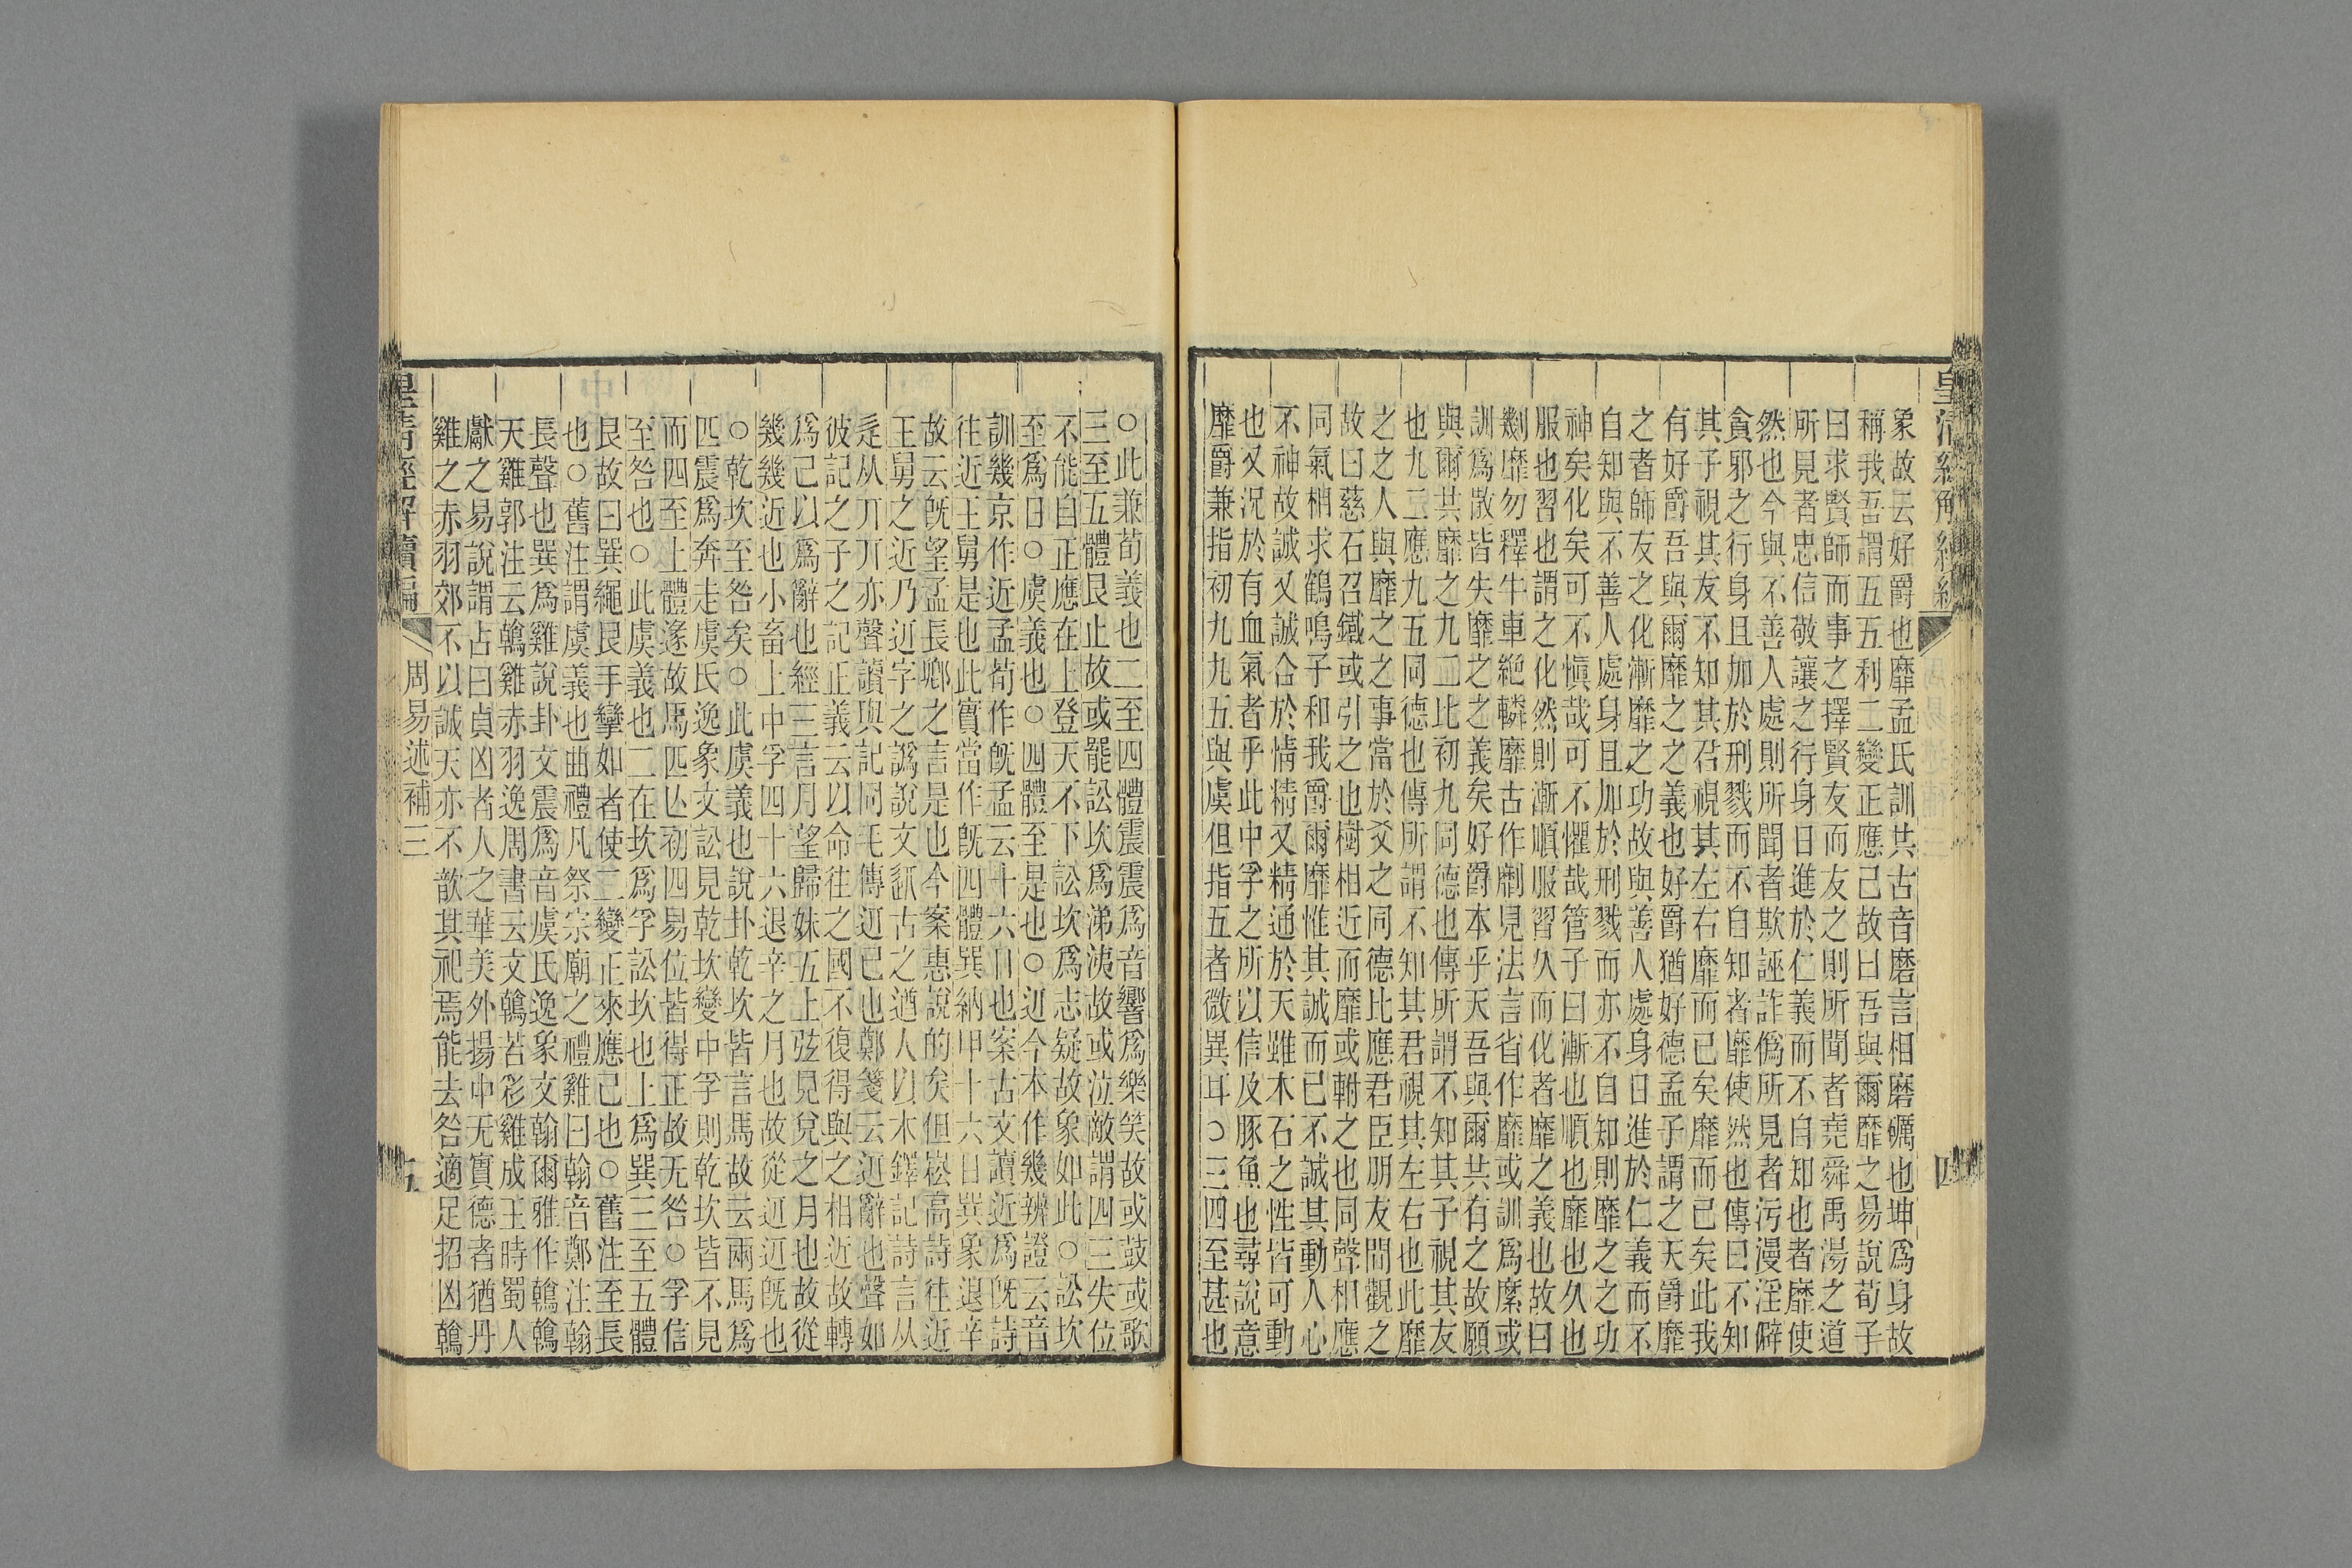 皇清經解續編
四
象故云好爵也靡孟氏訓共古音磨言相磨礪也坤爲身故
稱我吾謂五五利二變正應己故曰吾與爾靡之易說荀子
曰求賢師而事之擇賢友而友之則所聞者堯舜禹湯之道
所見者忠信敬讓之行身日進於仁義而不自知也者靡使
然也今與不善人處則所聞者欺誣詐僞所見者污漫淫僻
貪邪之行身且加於刑戮而不自知者靡使然也傳曰不知
其子視其友不知其君視其左右靡而已矣靡而已矣此我
有好爵吾與爾靡之之義也好爵猶好德孟子謂之天爵靡
之者師友之化漸靡之功故與善人處身日進於仁義而不
自知與不善人處身且加於刑戮而亦不自知則靡之之功
神矣化矣可不愼哉可不懼哉管子曰漸也順也靡也久也
服也習也謂之化然則漸順服習久而化者靡之義也故曰
劙靡勿釋牛車絶轔靡古作劘見法言省作靡或訓爲縻或
訓爲散皆失靡之之義矣好爵本乎天吾與爾共有之故願
與爾共靡之九二比初九同德也傳所謂不知其子視其友
也九二應九五同德也傳所謂不知其君視其左右也此靡
之之人與靡之之事當於爻之同德比應君臣朋友間觀之
故曰慈石召鐵或引之也樹相近而靡或軵之也同聲相應
同氣相求鶴鳴子和我爵爾靡惟其誠而已不誠其動人心
不神故誠又誠合於情精又精通於天雖木石之性皆可動
也又況於有血氣者乎此中孚之所以信及豚魚也尋說意
靡爵兼指初九九五與虞但指五者微異耳○三四至甚也
○此兼荀義也二至四體震震爲音響爲樂笑故或鼓或歌
三至五體艮止故或罷訟坎爲涕洟故或泣敵謂四三失位
不能自正應在上登天不下訟坎爲志疑故象如此○訟坎
至爲日○虞義也○四體至是也○近今本作幾辨證云音
訓幾京作近孟荀作旣孟云十六日也案古文讀近爲旣詩
往近王舅是也此實當作旣四體巽納甲十六日巽象退辛
故云旣望孟長卿之言是也今案惠說的矣但崧高詩往近
王舅之近乃䢋字之譌說文䢋古之遒人以木鐸記詩言从
辵从丌丌亦聲讀與記同毛傳䢋已也鄭箋云䢋辭也聲如
彼記之子之記正義云以命往之國不復得與之相近故轉
爲已以爲辭也經三言月望歸妹五上弦見兌之月也故從
幾幾近也小畜上中孚四十六退辛之月也故從䢋䢋旣也
○乾坎至咎矣○此虞義也說卦乾坎皆言馬故云兩馬爲
匹震爲奔走虞氏逸象文訟見乾坎變中孚則乾坎皆不見
而四至上體遂故馬匹亾初四易位皆得正故无咎○孚信
至咎也○此虞義也二在坎爲孚訟坎也上爲巽三至五體
艮故曰巽繩艮手攣如者使二變正來應己也○舊注至長
也○舊注謂虞義也曲禮凡祭宗廟之禮雞曰翰音鄭注翰
長聲也巽爲雞說卦文震爲音虞氏逸象文翰爾雅作鶾鶾
天雞郭注云鶾雞赤羽逸周書云文鶾若彩雞成王時蜀人
獻之易說謂占曰貞凶者人之華美外揚中无實德者猶丹
雞之赤羽郊不以誠天亦不歆其祀焉能去咎適足招凶鶾
皇清經解續編
周易述補三
五